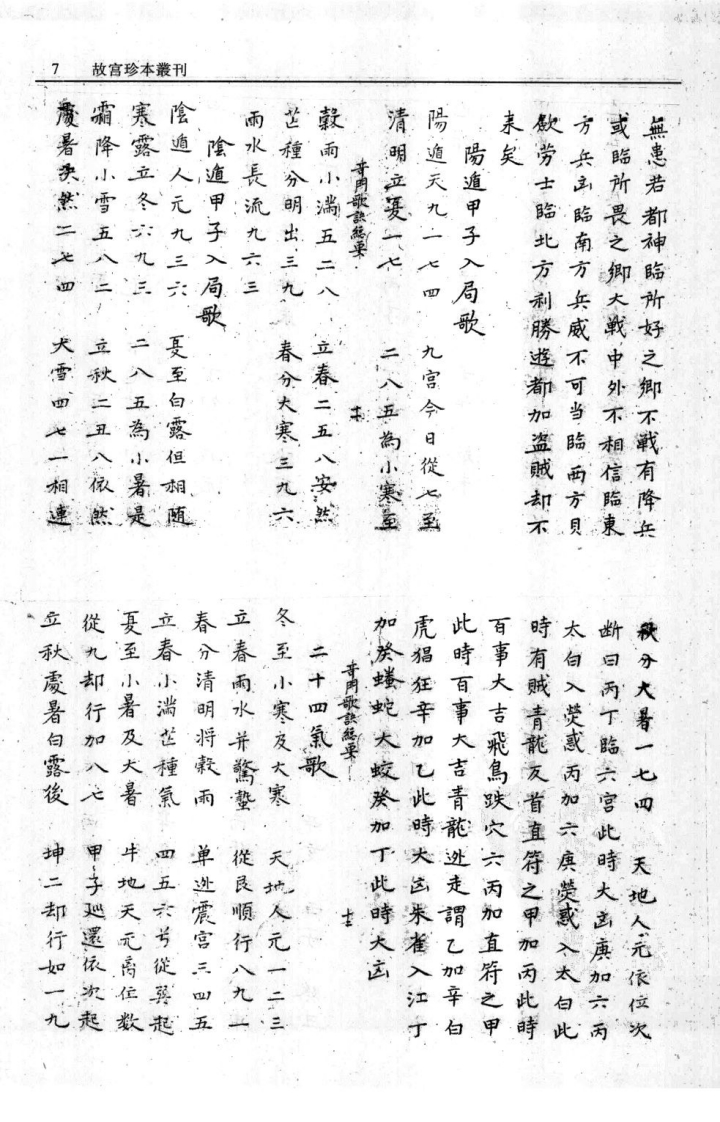 7 故宮珍本叢刊
無患若都神臨所好之鄉不戰有降兵
或臨所畏之鄉大戰中外不相信臨東
方兵凶臨南方兵威不可当臨西方貝
飲劳士臨北方利勝遊都加盗賊却不
来矣
陽遁甲子入局歌
陽遁天九一七四 九宮今日從七至
清明立夏一七 二八五為小寒至
奇門歌訣総要
十
穀雨小満五二八 立春二五八安然
芒種分明出三九 春分大寒三九六
雨水長流九六三
陰遁甲子入局歌
陰遁人元九三六 夏至白露但相随
寒露立冬六九三 二八五為小暑是
霜降小雪五八二 立秋二五八依然
處暑 然二七四 大雪四七一相連
秋分大暑一七四 天地人元依位次
断曰丙丁臨六宮此時大凶庚加六丙
太白入熒惑丙加六庚熒惑入太白此
時有賊青龍反首直符之甲加丙此時
百事大吉飛鳥跌穴六丙加直符之甲
此時百事大吉青龍迯走謂乙加辛白
虎猖狂辛加乙此時大凶朱雀入江丁
加癸螣蛇大蛟癸加丁此時大凶
奇門歌訣総要
十一
二十四氣歌
冬至小寒及大寒 天地人元一二三
立春雨水并驚蟄 從艮順行八九一
春分清明将穀雨 单迯震宮三四五
立春小満芒種氣 四五六兮從巽起
夏至小暑及大暑 牛地天元离位数
從九却行加八七 甲子廵還依次起
立秋處暑白露後 坤二却行如一九